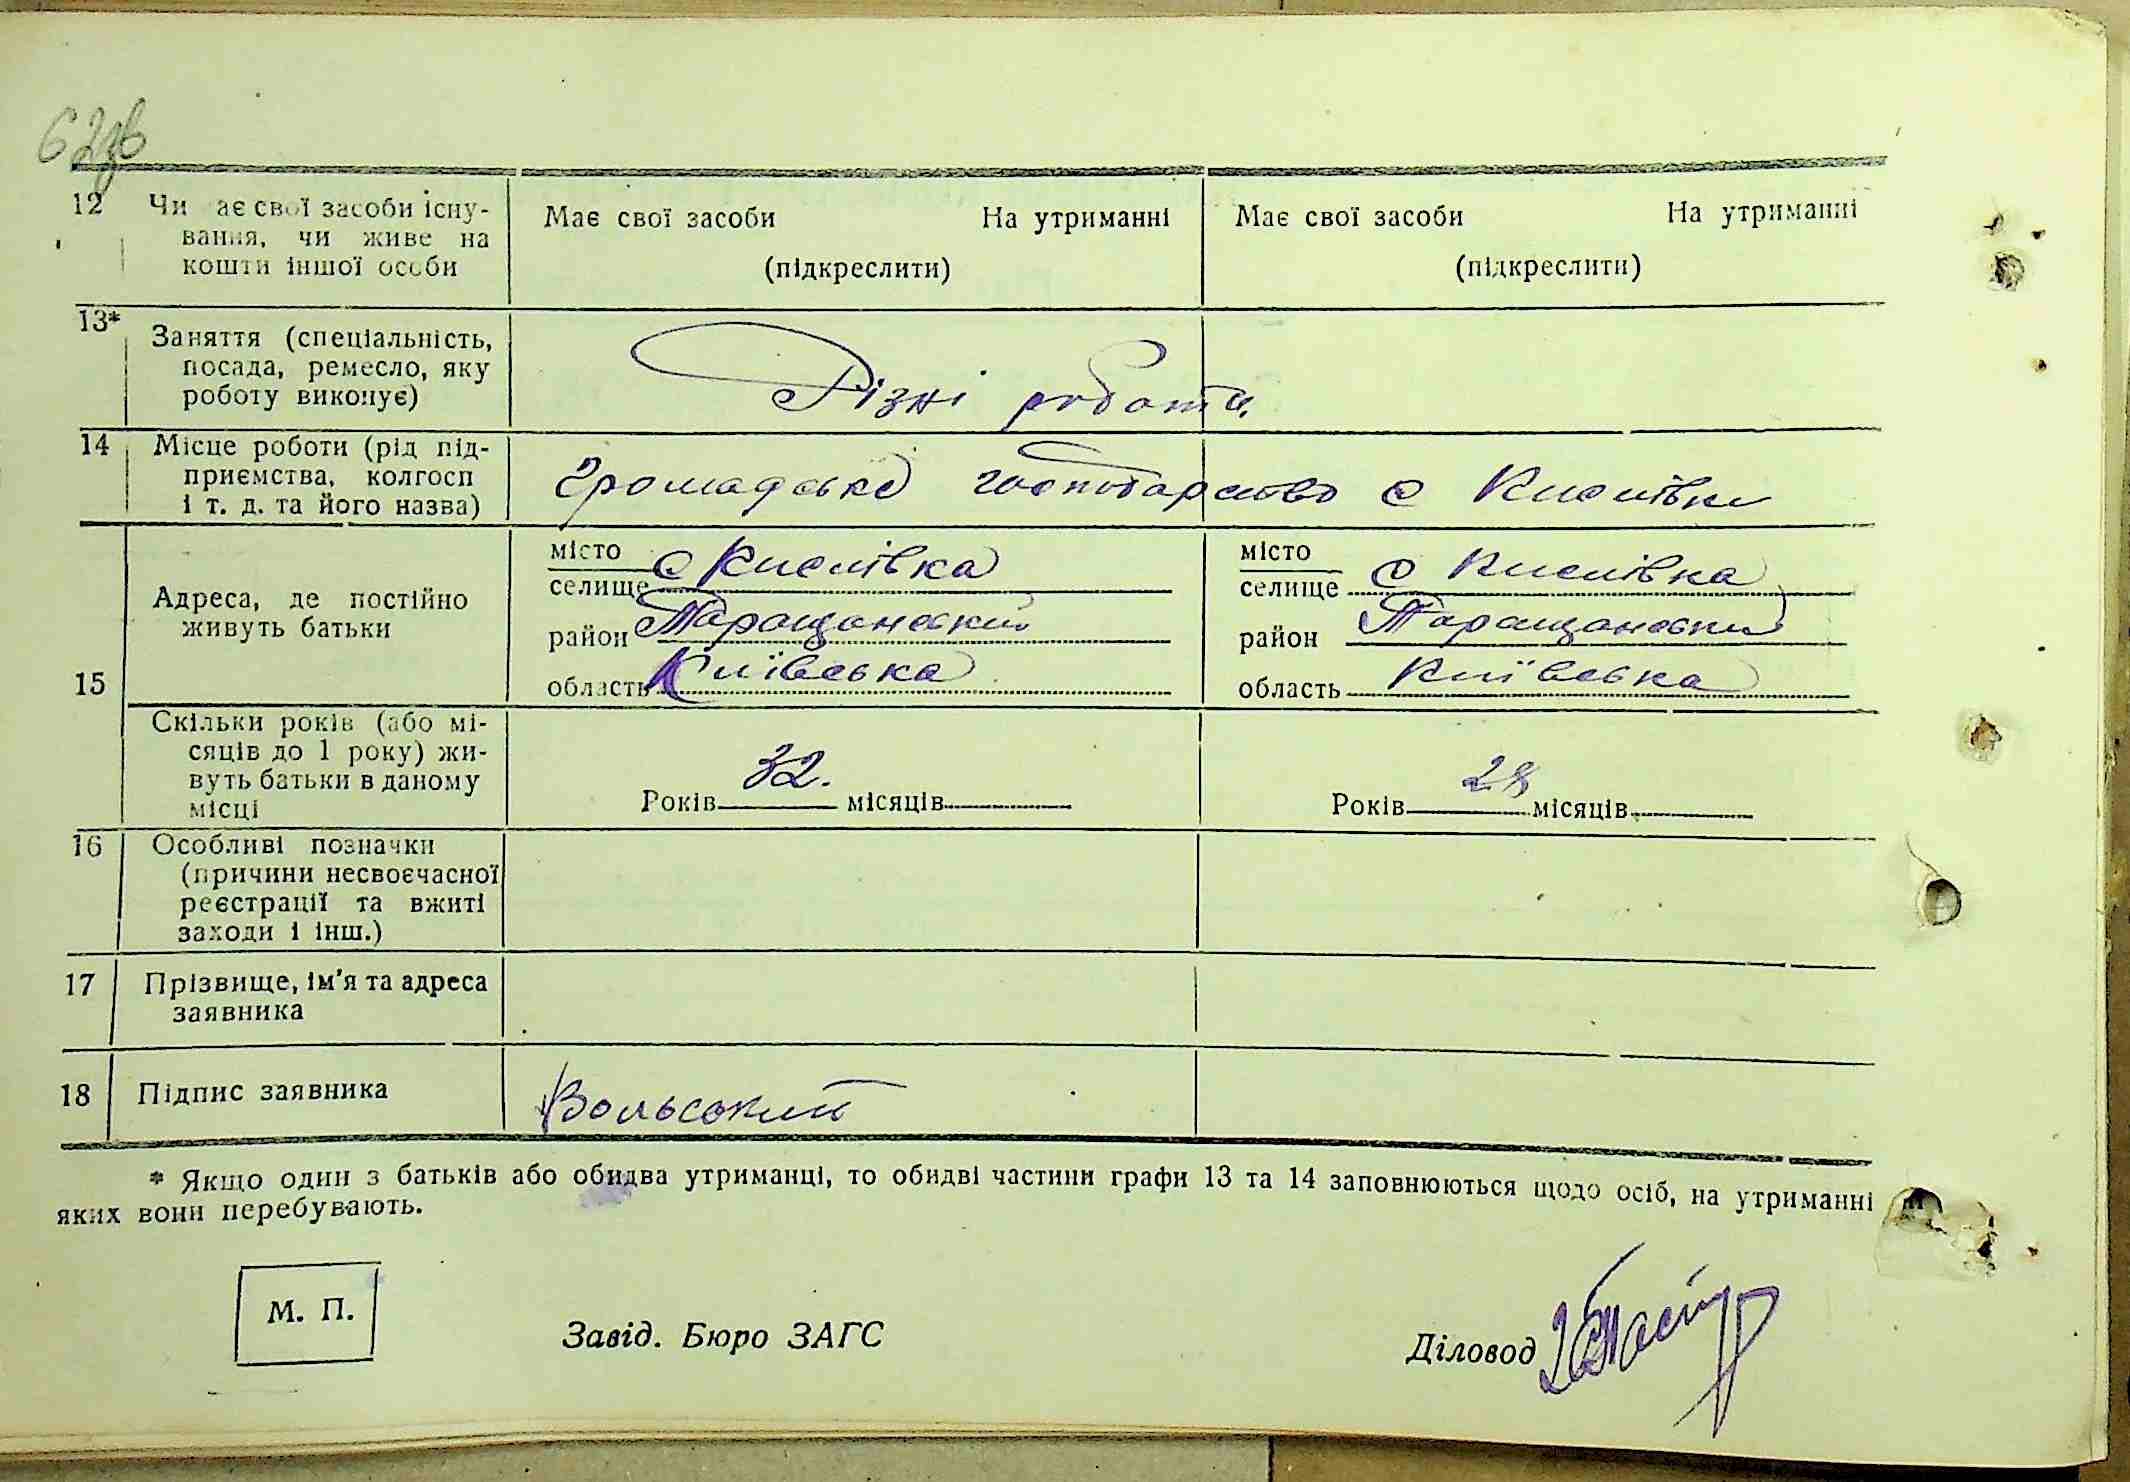 62зв
12 Чи ає свої засоби існу-
вання, чи живе на
кошти іншої особи
Має свої засоби На утриманні
(підкреслити)
Має свої засоби На утриманні
(підкреслити)
13* Заняття (спеціальність,
посада, ремесло, яку
роботу виконує)
Різні роботи
14 Місце роботи (рід під-
приємства, колгосп
і т. д. та його назва)
Громадське господарство с Кислівки
15
Адреса, де постійно
живуть батьки
місто
селище с Кислівка
район Таращанський
область Київська
місто
селище с Кислівка
район Таращанський
область Київська
Скільки років (або мі-
сяців до 1 року) жи-
вуть батьки в даному
місці
Років 32. місяців
Років 28 місяців
16 Особливі позначки
(причини несвоєчасної
реєстрації та вжиті
заходи і інш.)
17 Прізвище, ім'я та адреса
заявника
18 Підпис заявника
Вольський
* Якщо один з батьків або обидва утриманці, то обидві частини графи 13 та 14 заповнюються щодо осіб, на утриманні
яких вони перебувають.
М. П.
Завід. Бюро ЗАГС
Діловод